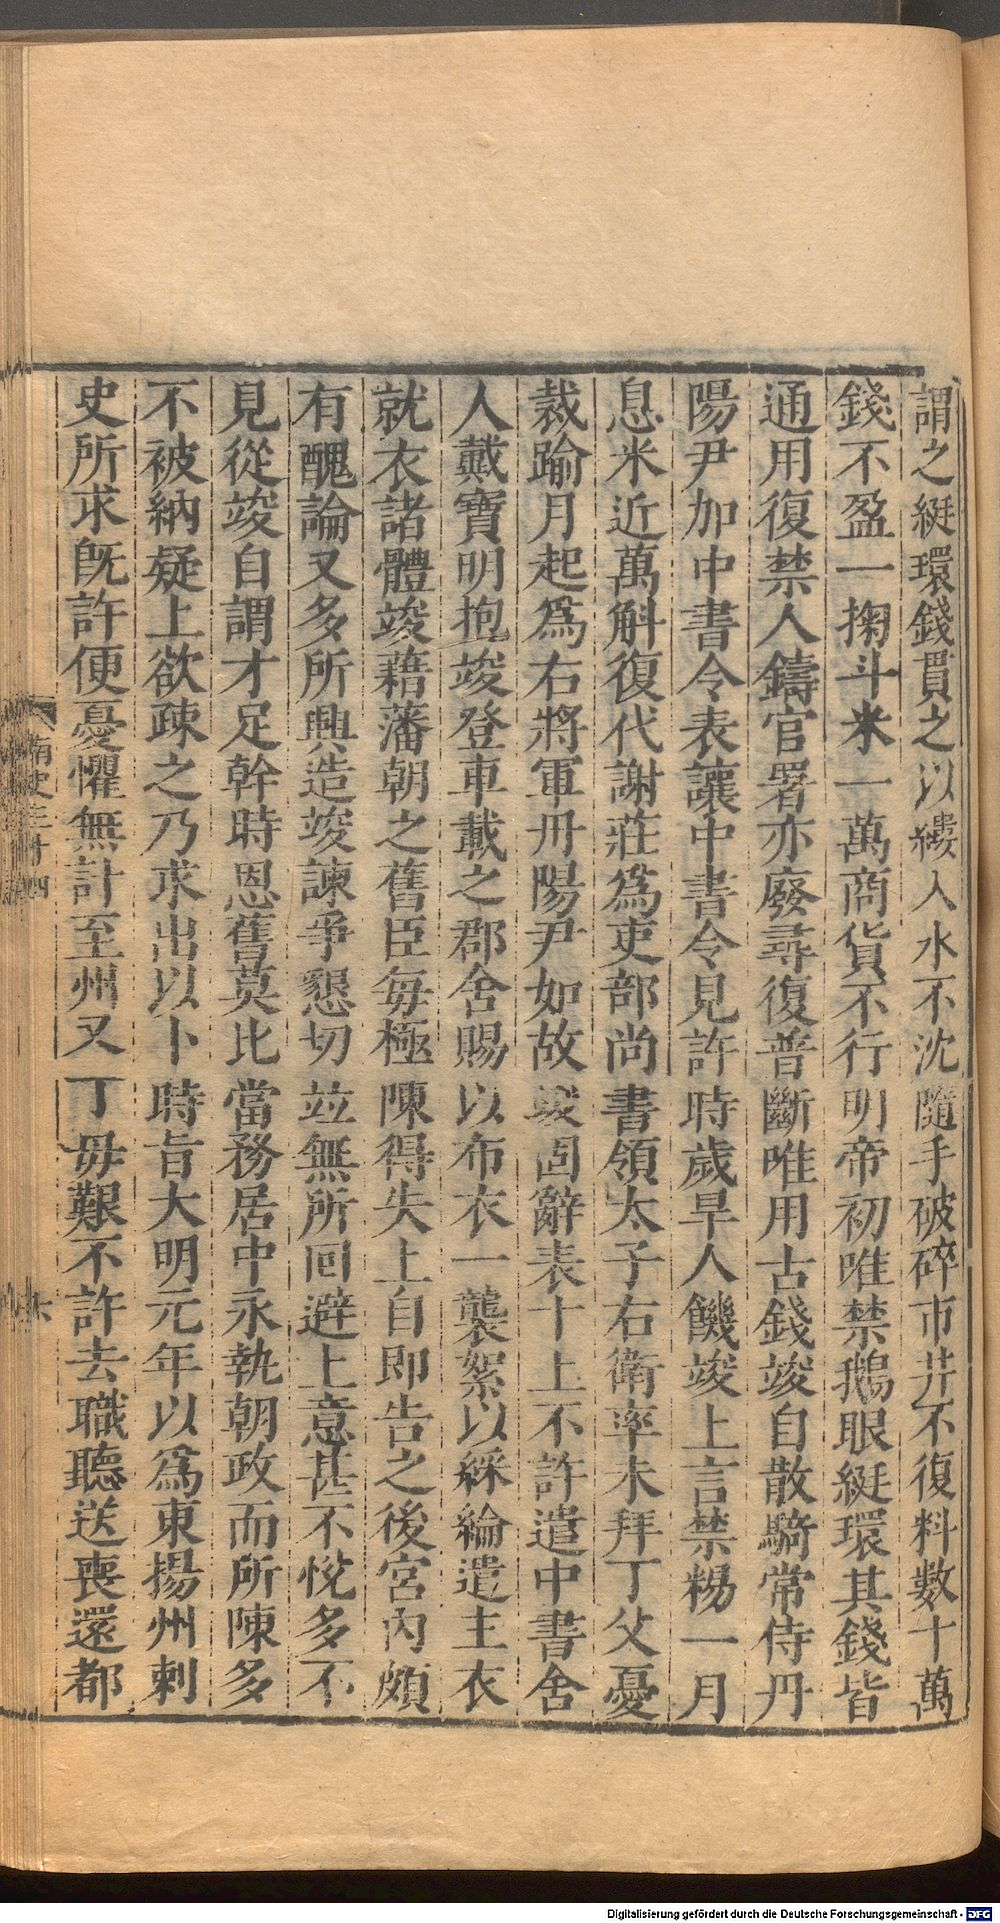 謂之綖環錢貫之以縷入水不沈隨手破碎市井不復料數十萬
錢不盈一掬斗米一萬商貨不行明帝初唯禁鵝眼綖環其錢皆
通用復禁人鑄官署亦廢尋復普斷唯用古錢竣自散騎常侍丹
陽尹加中書令表讓中書令見許時歲旱人饑竣上言禁餳一月
息米近萬斛復代謝莊為吏部尚書領太子右衛率未拜丁父憂
裁踰月起為右將軍丹陽尹如故竣固辭表十上不許遣中書舍
人戴寶明抱竣登車載之郡舍賜以布衣一襲絮以綵綸遣主衣
就衣諸體竣藉藩朝之舊臣每極陳得失上自即吉之後宮內頗
有醜論又多所興造竣諫爭懇切並無所回避上意甚不悅多不
見從竣自謂才足幹時恩舊莫比當務居中永執朝政而所陳多
不被納疑上欲疎之乃求出以卜時旨大明元年以為東揚州刺
史所求旣許便憂懼無計至州又丁毋艱不許去職聽送喪還都
南史三十四
六
Digitalisierung gefördert durch die Deutsche Forschungsgemeinschaft - DFG